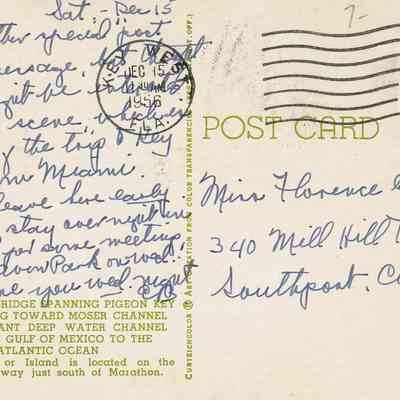 Sat:- Dec 15
ther special post
message, but thought
ght be
scene, which is
of the trip to Key
om Miami.
leave here early
stay overnight in
for some meeting
Avon Park on wed.
me you wed. night
7-
KEY WEST
DEC 15
1956
FLA.
POST CARD
Miss Florence
340 Mill Hill
Southport, Co
RIDGE SPANNING PIGEON KEY
G TOWARD MOSER CHANNEL
ANT DEEP WATER CHANNEL
GULF OF MEXICO TO THE
ATLANTIC OCEAN
or Island is located on the
way just south of Marathon.
CURTEICHCOLOR ® ART CREATION FROM COLOR TRANSPARENCY
OFF.)